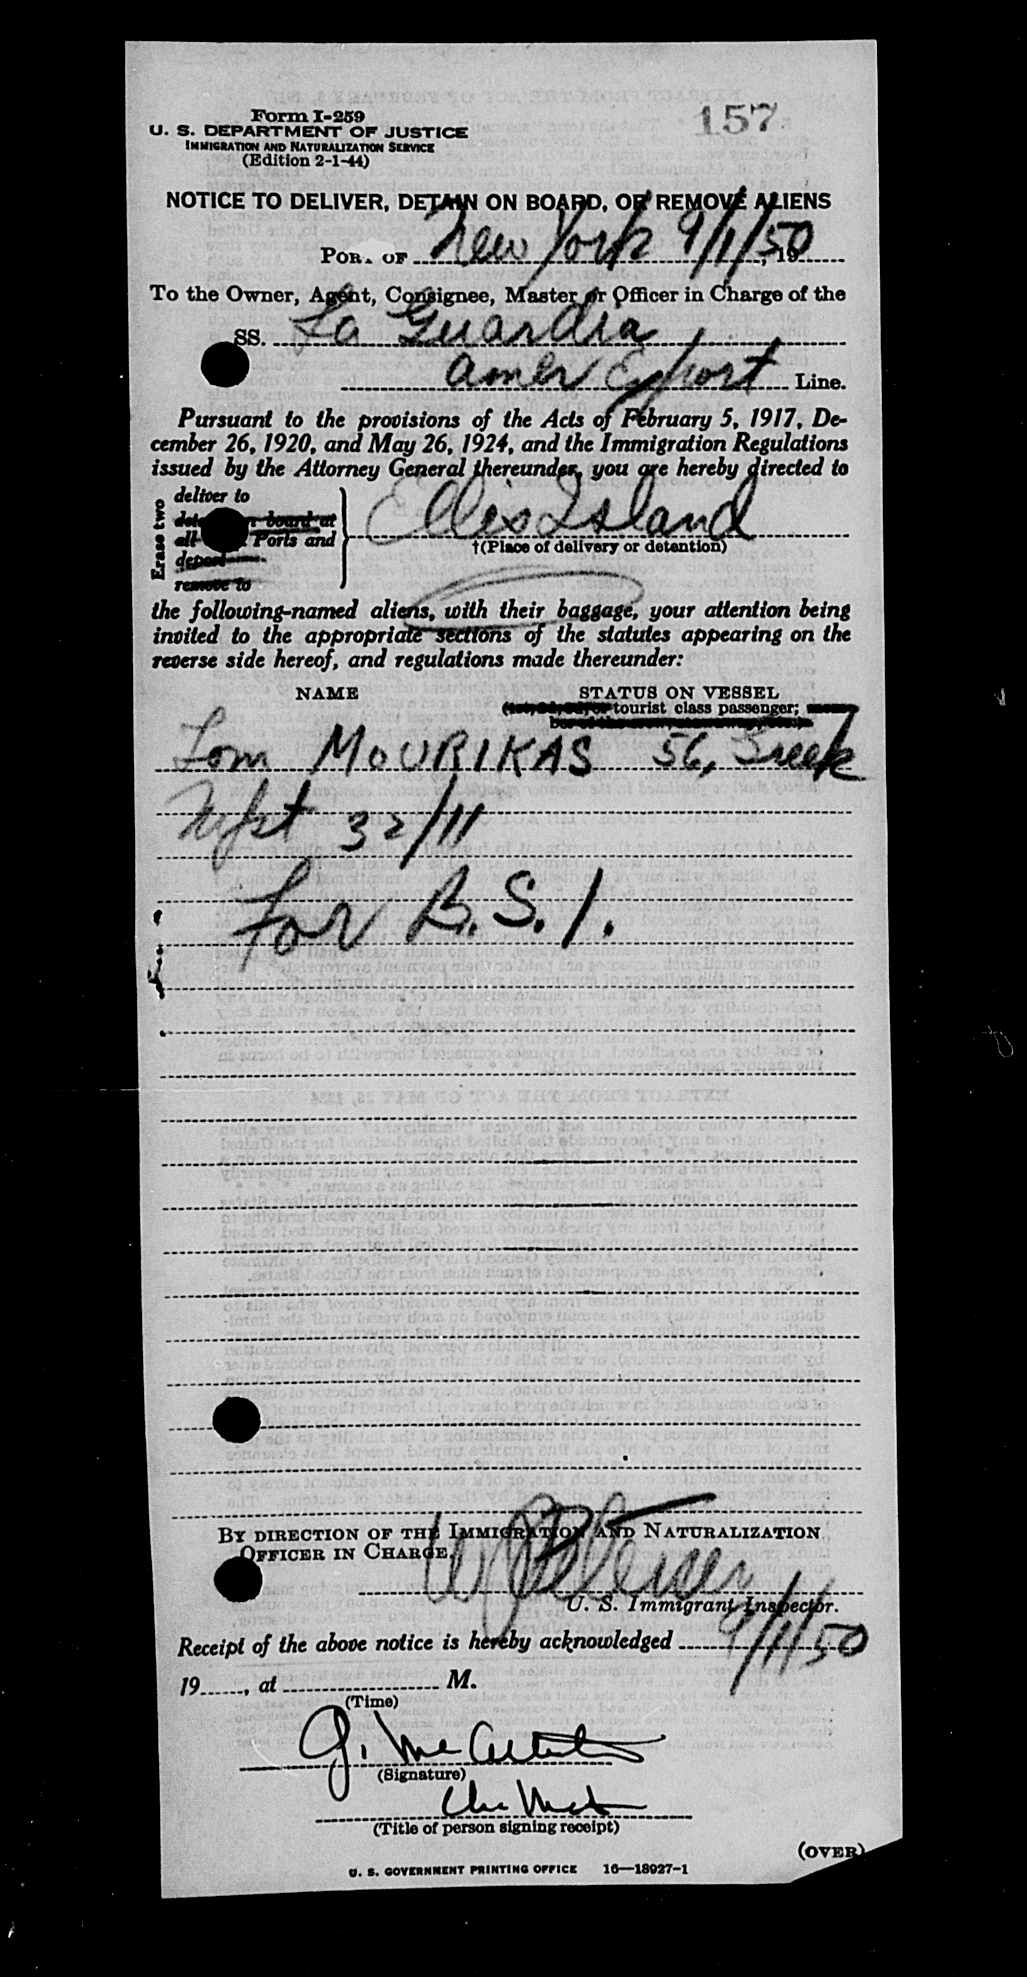 157
Form I-259
U. S. DEPARTMENT OF JUSTICE
IMMIGRATION AND NATURALIZATION SERVICE
(Edition 2-1-44)
NOTICE TO DELIVER, DETAIN ON BOARD, OR REMOVE ALIENS
POR. OF New York 9/1/50, 19
To the Owner, Agent, Consignee, Master or Officer in Charge of the
SS. La Guardia
Amer Export Line.
Pursuant to the provisions of the Acts of February 5, 1917, De-
cember 26, 1920, and May 26, 1924, and the Immigration Regulations
issued by the Attorney General thereunder, you are hereby directed to
Erase two
deliver to
board at
all Ports and
deport
remove to
Ellis Island
†(Place of delivery or detention)
the following-named aliens, with their baggage, your attention being
invited to the appropriate sections of the statutes appearing on the
reverse side hereof, and regulations made thereunder:
NAME STATUS ON VESSEL
tourist class passenger;
Tom MOURIKAS 56, Greek
32/11
For B.S.I.
BY DIRECTION OF THE IMMIGRATION AND NATURALIZATION
OFFICER IN CHARGE
U. S. Immigrant Inspector.
Receipt of the above notice is hereby acknowledged 9/1/50
19, at M.
(Time)
(Signature)
(Title of person signing receipt)
(OVER)
U. S. GOVERNMENT PRINTING OFFICE 16—18927-1